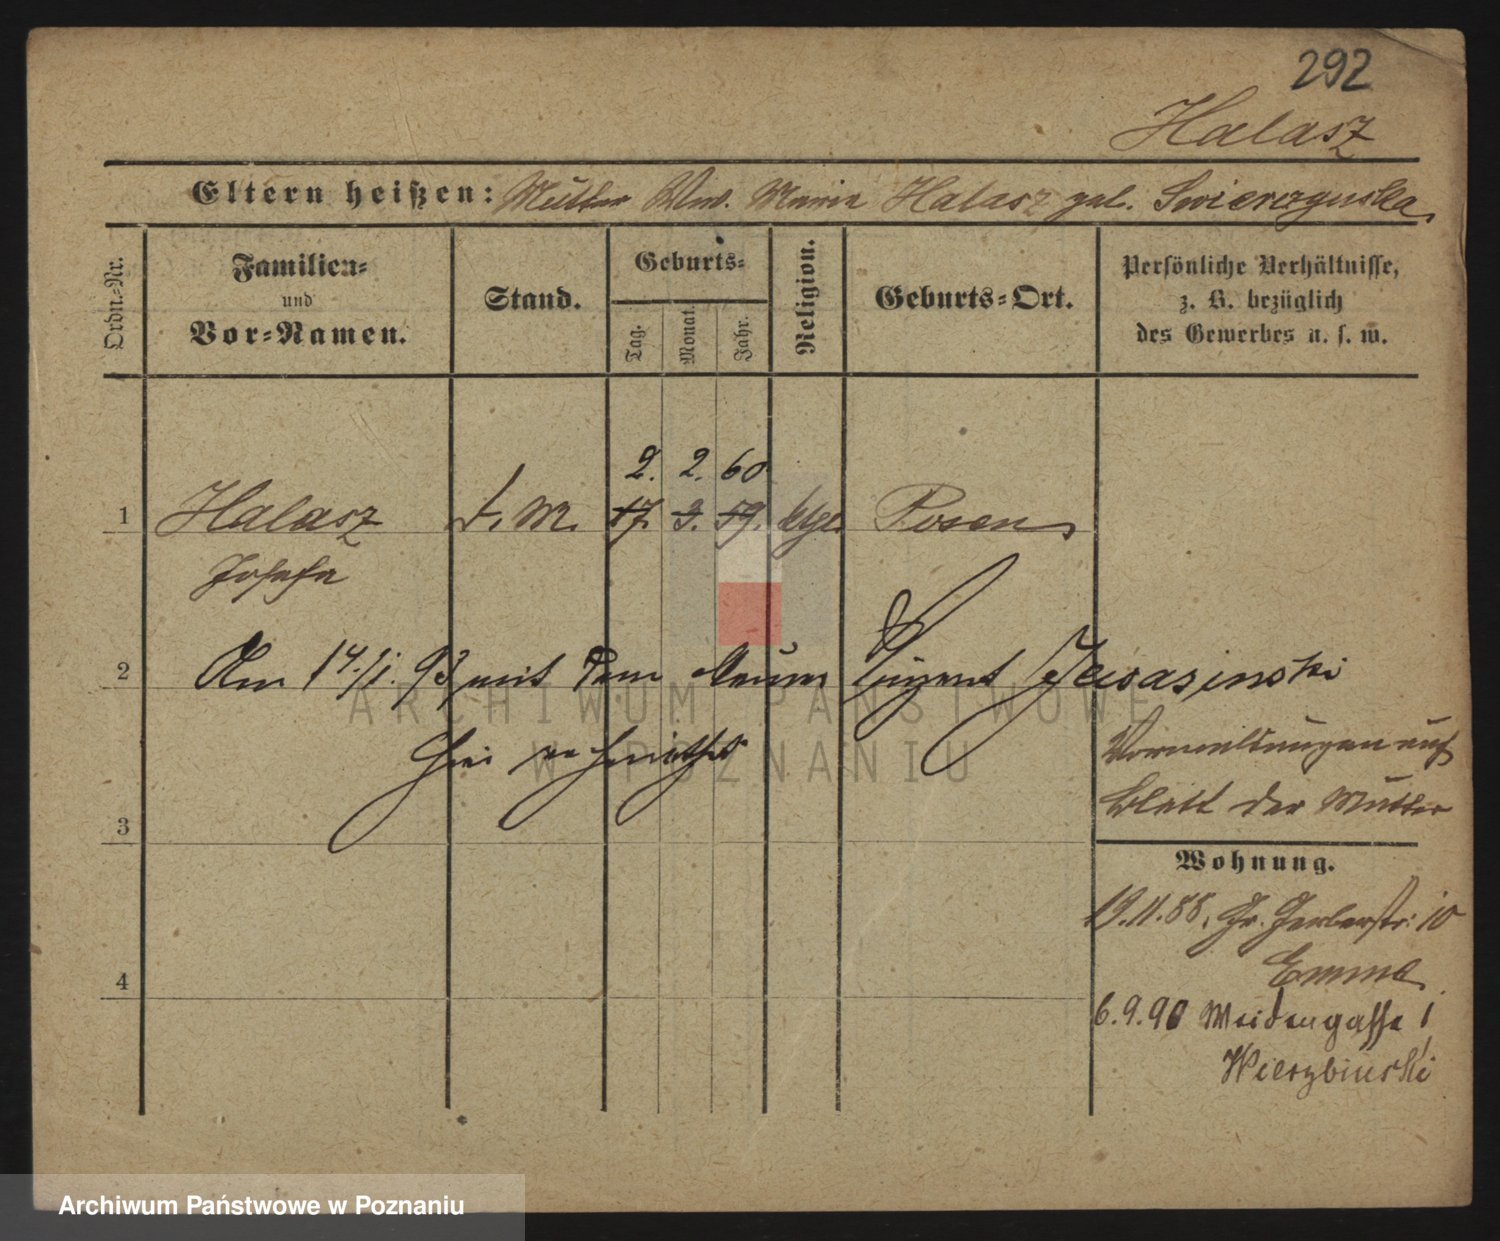 292
Halasz
Eltern heißen: Mutter Wwe. Maria Halasz geb. Swierczynska
Ordn.-Nr.
Familien-
und
Vor-Namen.
Stand.
Geburts-
Tag.
Monat.
Jahr.
Religion.
Geburts-Ort.
Persönliche Verhältnisse,
z. B. bezüglich
des Gewerbes u. s. w.
2. 2. 60
1 Halasz d. M. 17. 3. 59. ktl. Posen
Josefa
2 Am 14./1. 93 mit dem Vincent
hier verheirathet
Vormeldungen auf
Blatt der Mutter
3
Wohnung.
19.11.88. Gr. Gerberstr. 10
4
6.9.90 Weidengasse 1
Wierzbinski
ARCHIWUM PAŃSTWOWE
W POZNANIU
Archiwum Państwowe w Poznaniu